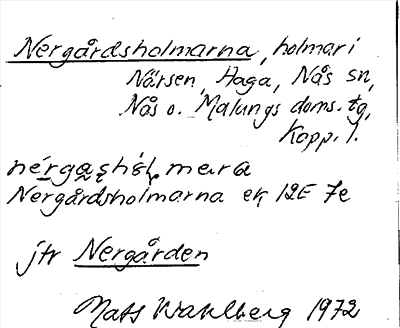 Nergårdsholmarna, holmar i
Närsen, Haga, Nås sn,
Nås o. Malungs doms. tg,
Kopp. l.
Nergårdsholmarna ek 12E 7e
jfr Nergården
Mats Wahlberg 1972